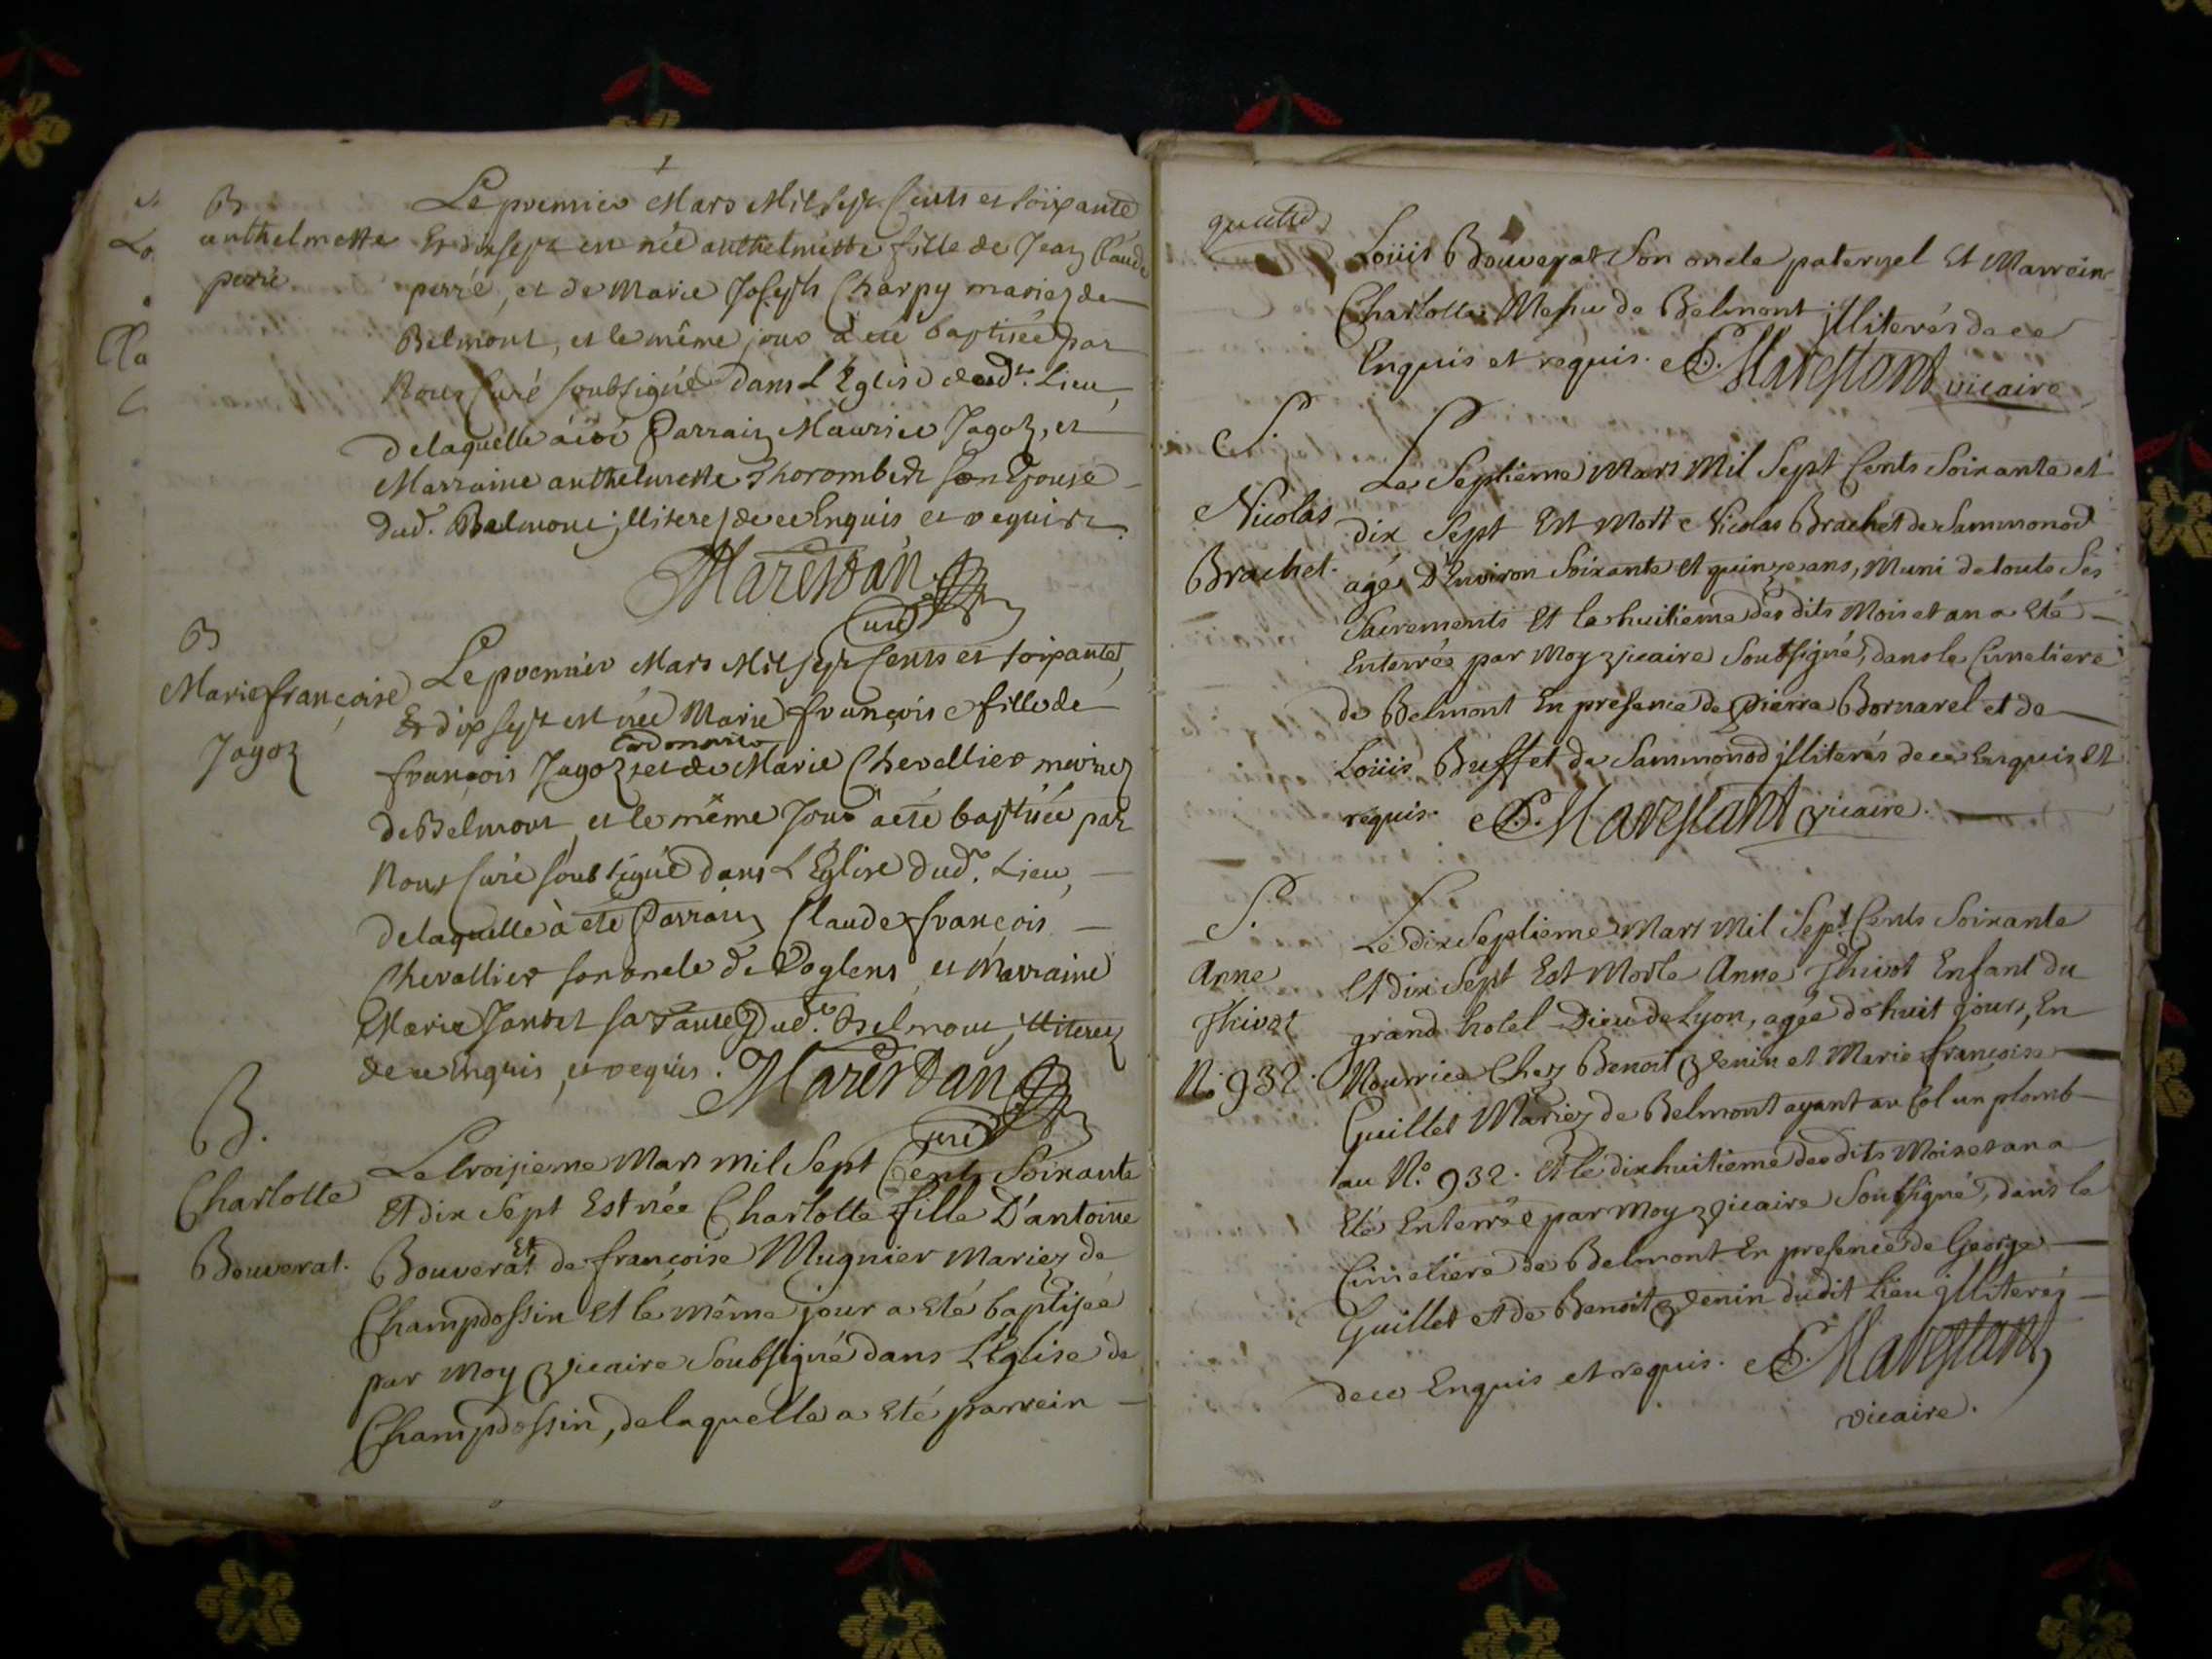 B
anthelmette
perré
Le premier Mars Mil sept Cents et soixante
Et dix sept est née anthelmette fille de Jean Claude
perré, et de Marie Joseph Charpy mariez de
Belmont, et le même jour a été baptisée par
Nous Curé soubsigné dans L'Eglise dud.t Lieu,
de laquelle a été Parrain Maurice Jagoz, et
Marraine anthelmette Thorombert son Epouse
dud. Belmont illiterez de ce Enquis et requis
Marestan
Curé
B
Marie françoise
Jagoz
Le premier Mars Mil sept Cents et soixante,
Et dix sept est née Marie françoise fille de
françois Jagoz cordonnier et de Marie Chevallier mariez
de Belmont, et le même Jour a été baptisée par
Nous Curé soubsigné dans L'Eglise dud. Lieu,
de laquelle à été Parrain Claude françois
Chevallier son oncle de Voglens et Marraine
Marie Jantet sa Tante Dud. Belmont, illiterez
de ce Enquis, et requis. Marestan
Curé
B.
Charlotte
Bouverat.
Le troisieme Mars mil Sept Cents Soixante
Et dix Sept Est née Charlotte fille D'antoine
Bouverat Et de françoise Mugnier Mariez de
Champdossin Et le même jour a Eté baptisée
par Moy Vicaire Soubsigné dans L'Eglise de
Champdossin, de laquelle a Eté parrein
Loüis Bouverat Son oncle paternel Et Marreine
Charlotte de Belmont illiterés de ce
Enquis et requis. Marestant vicaire
S.
Nicolas
Brachet.
Le Septieme Mars Mil Sept Cents Soixante et
dix Sept Est Mort Nicolas Brachet de Sammonod
agé D'Environ Soixante Et quinze ans, Muni de touts Ses
Sacrements Et le huitieme des dits Mois et an a Eté
Enterrée par Moy Vicaire Soubsigné, dans le Cimetiere
de Belmont En presence de Pierre Bornarel et de
Loüis Buffet de Sammonod illiterés de ce Enquis Et
requis. Marestant Vicaire.
S.
Anne
Thivot
N.o 932.
Le dix Septieme Mars Mil Sept Cents Soixante
Et dix Sept Est Morte Anne Thivot Enfant du
grand hotel Dieu de Lyon, agée de huit jours, En
Nourrice Chez Benoit Venin et Marie françoise
Guillet Mariez de Belmont ayant au Col un plomb
au N.o 932. Et le dix huitieme des dits Mois et an a
Eté Enterrée par Moy Vicaire Soubsigné, dans le
Cimetiere de Belmont En presence de George
Guillet et de Benoit Venin dudit Lieu illiterés
de ce Enquis et requis. Marestant
vicaire.